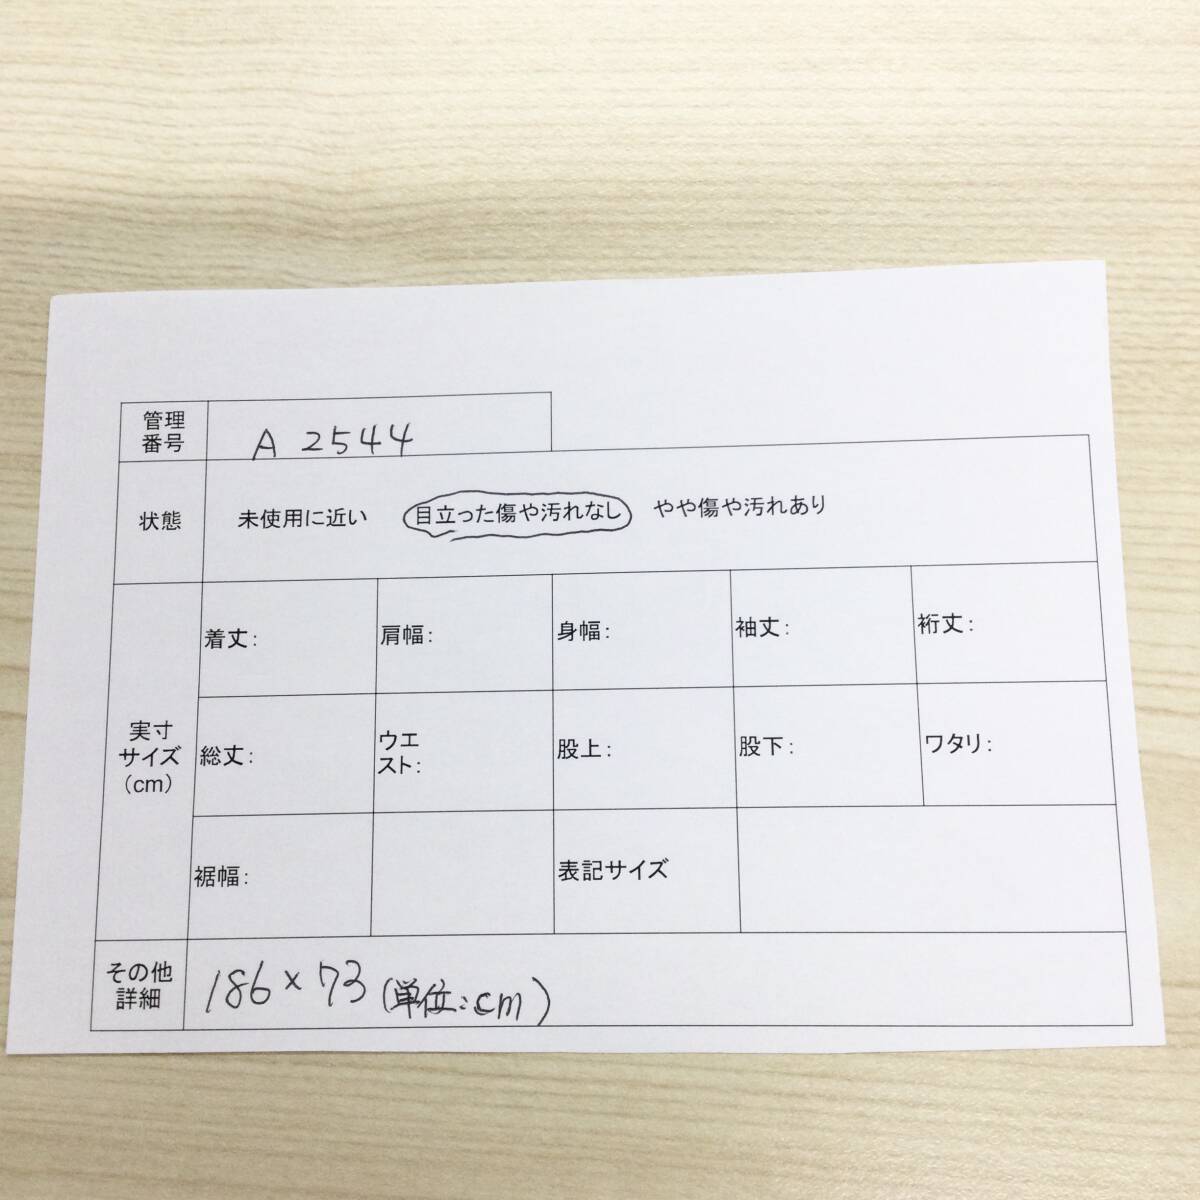 管理
番号
A 2544
状態
未使用に近い 目立った傷や汚れなし やや傷や汚れあり
実寸
サイズ
(cm)
着丈: 肩幅: 身幅: 袖丈: 裄丈:
総丈:
ウエ
スト:
股上: 股下: ワタリ:
裾幅: 表記サイズ
その他
詳細
186×73 (単位:cm)